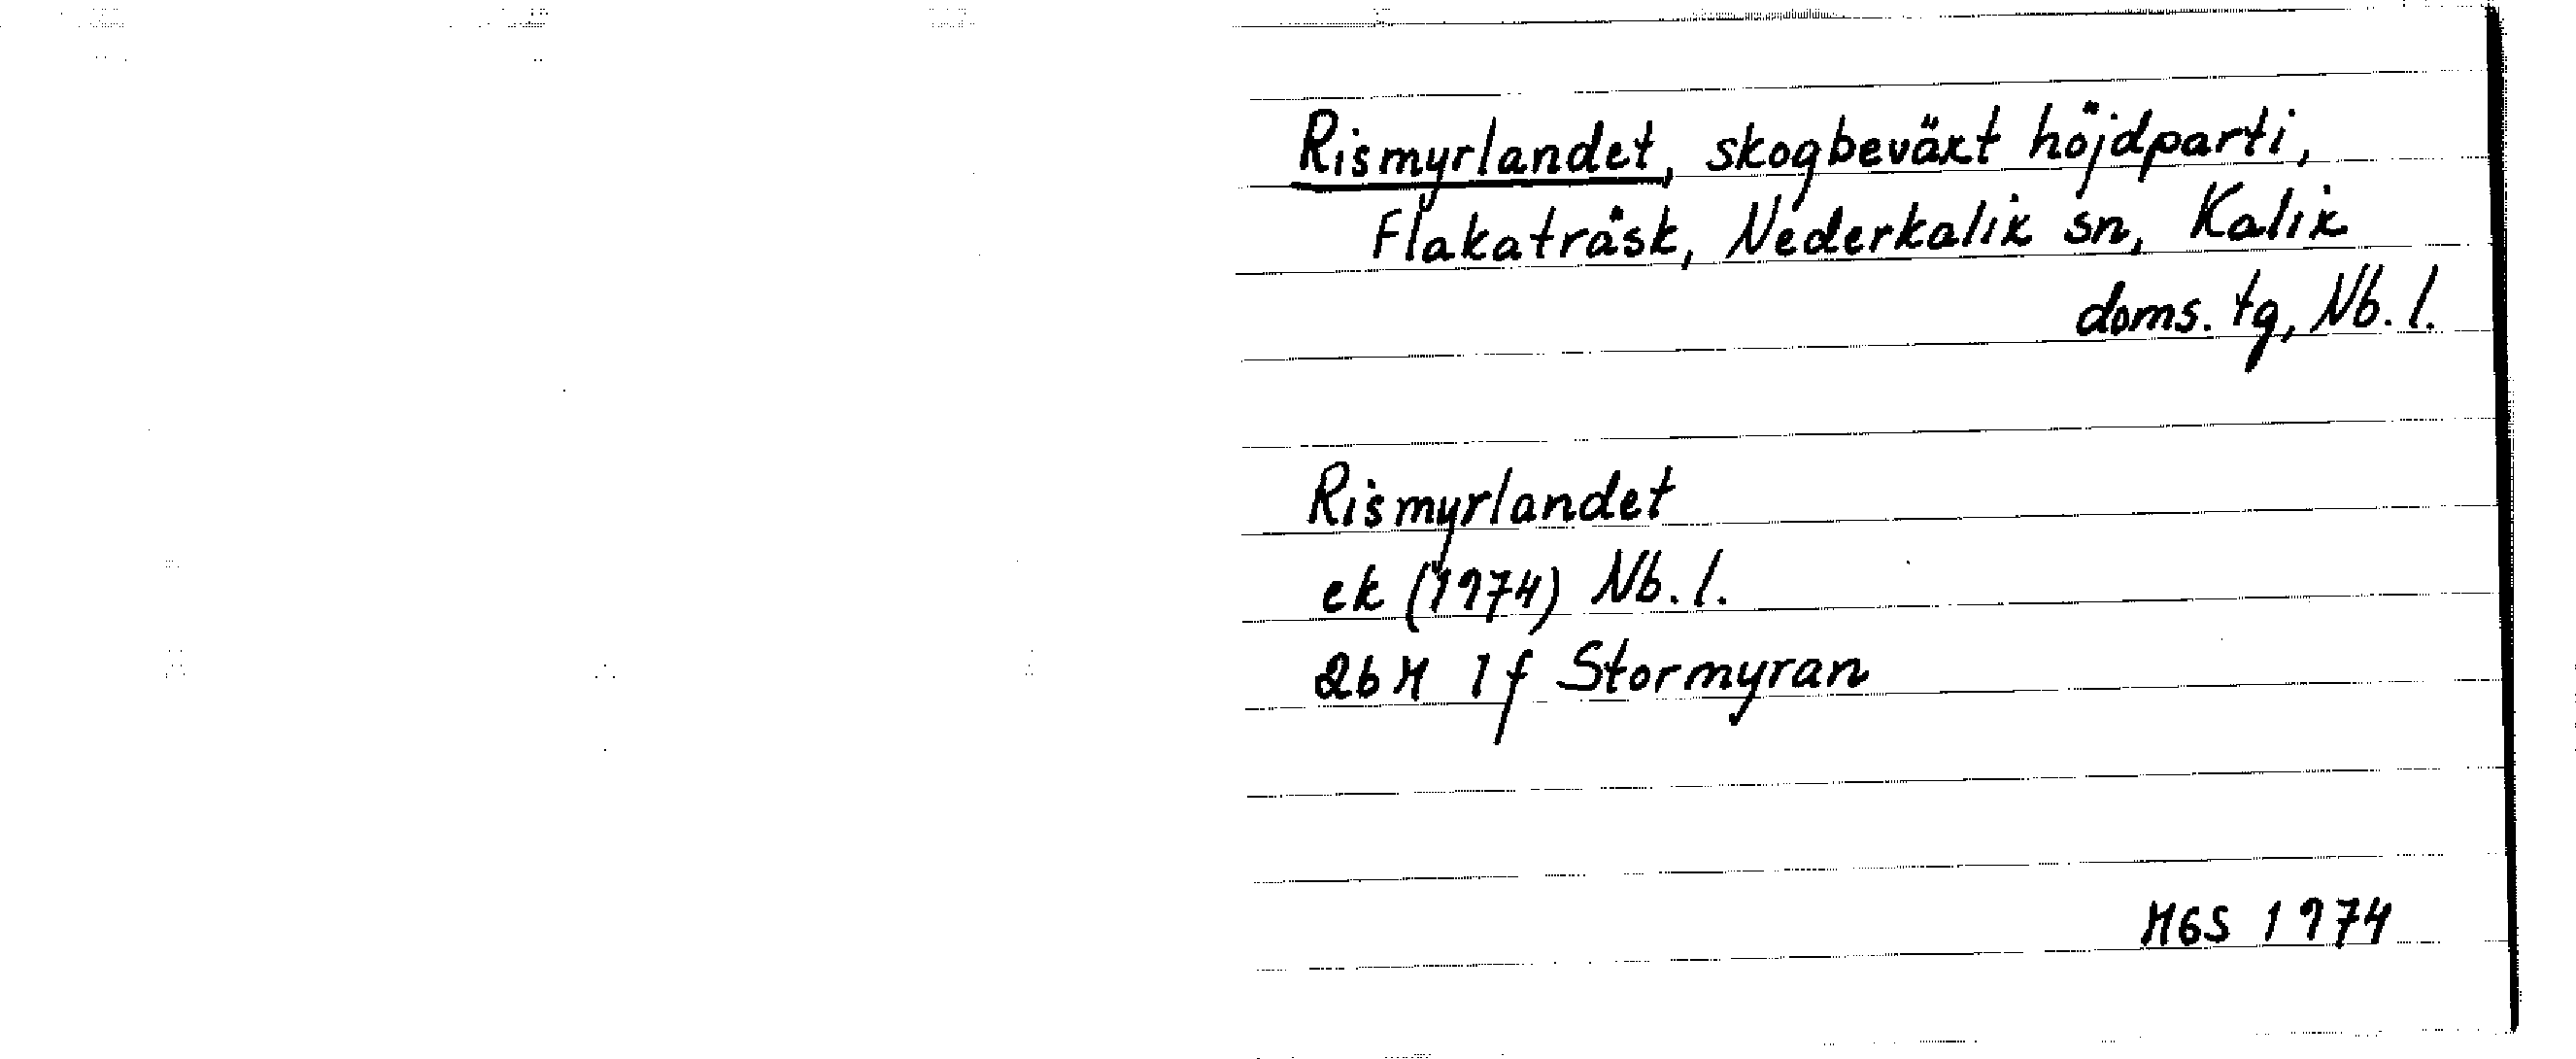 Rismyrlandet, skogbeväxt höjdparti,
Flakaträsk, Nederkalix sn, Kalix
doms. tg, Nb. l.
Rismyrlandet
ek (1974) Nb. l.
26M 1f Stormyran
MGS 1974